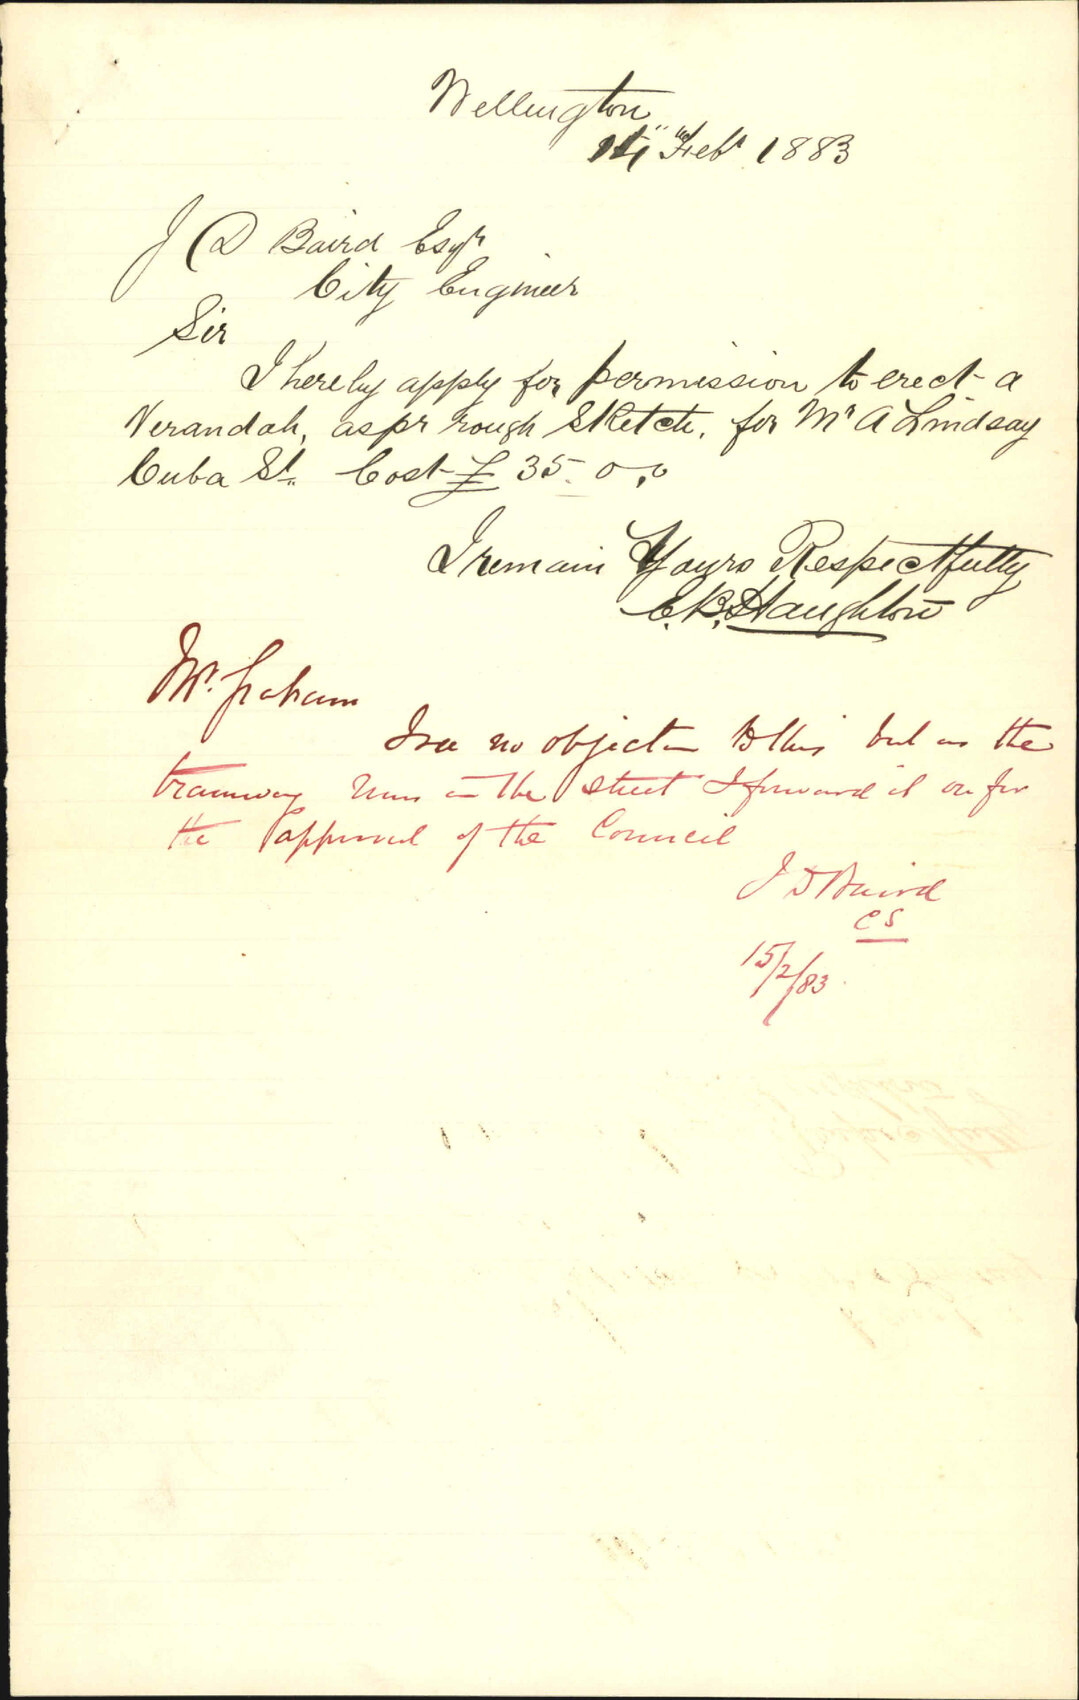 Wellington
14" Feby 1883
J D Baird Esqr
City Engineer
Sir
I hereby apply for permission to erect a
Verandah, as pr rough Sketch, for Mr A Lindsay
Cuba St. Cost £35.0.0
I remain Yours Respectfully
E. B. Haughton
Mr. Graham
I see no objectn to this but as the
tramway runs in the street I forward it on for
the approval of the Council
J D Baird
CS
15/2/83